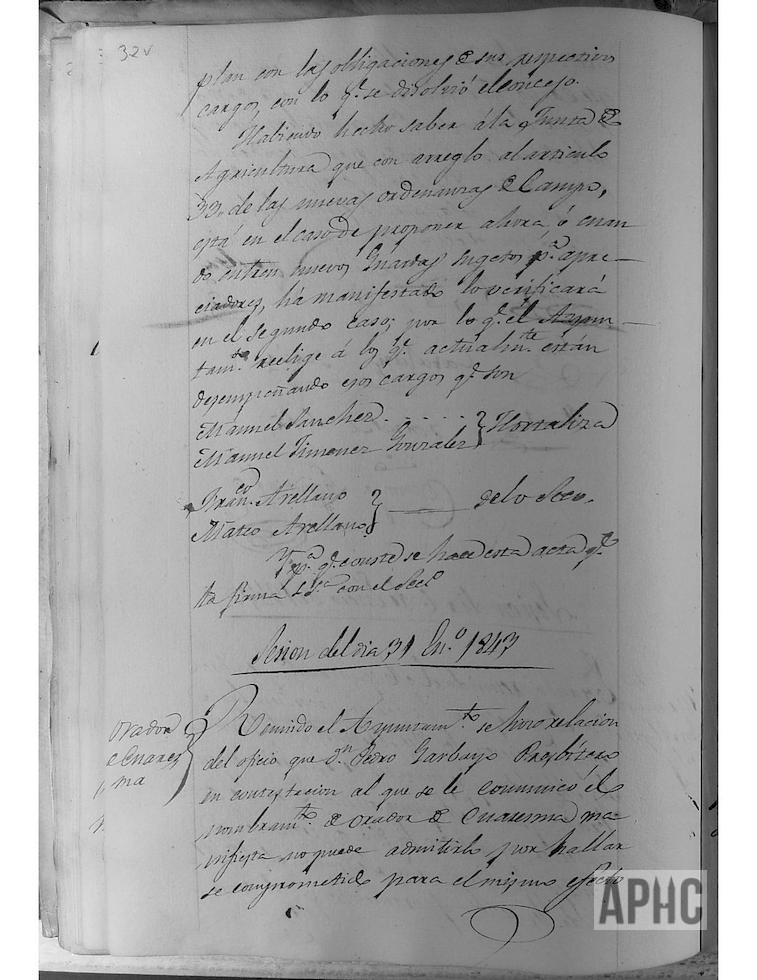 32v
plan con las obligaciones de sus respectivos
cargos, con lo q.e se disolvió el concejo.
Habiendo hecho saber á la Junta de
Agricultura que con arreglo al articulo
33. de las nuevas ordenanzas de Campo,
está en el caso de proponer ahora, ó cuan
do entren nuevos Guardas sugetos p.a apre-
ciadores, há manifestado lo verificará
en el segundo caso; por lo q.e el Ayun-
tam.to reelige á los q.e actualm.te están
desempeñando esos cargos q.e son
Manuel Sanchez . . . . . } Hortaliza
Manuel Jimenez Gonzalez
Fran.co Arellano } ___ de lo Seco.
Mateo Arellano
Y p.a q.e conste se hace esta acta q.e
la firma S.S.a con el Sec.o
Sesion del dia 31 En.o 1843
Orador de Cuares ma }
Reunido el Ayuntam.to se hizo relacion
del oficio que d.n Pedro Garbayo Presbitero
en contestacion al que se le comunicó el
nombram.to de orador de Cuaresma ma
nifiesta no puede admitirlo por hallar
se comprometido para el mismo efecto
APHC